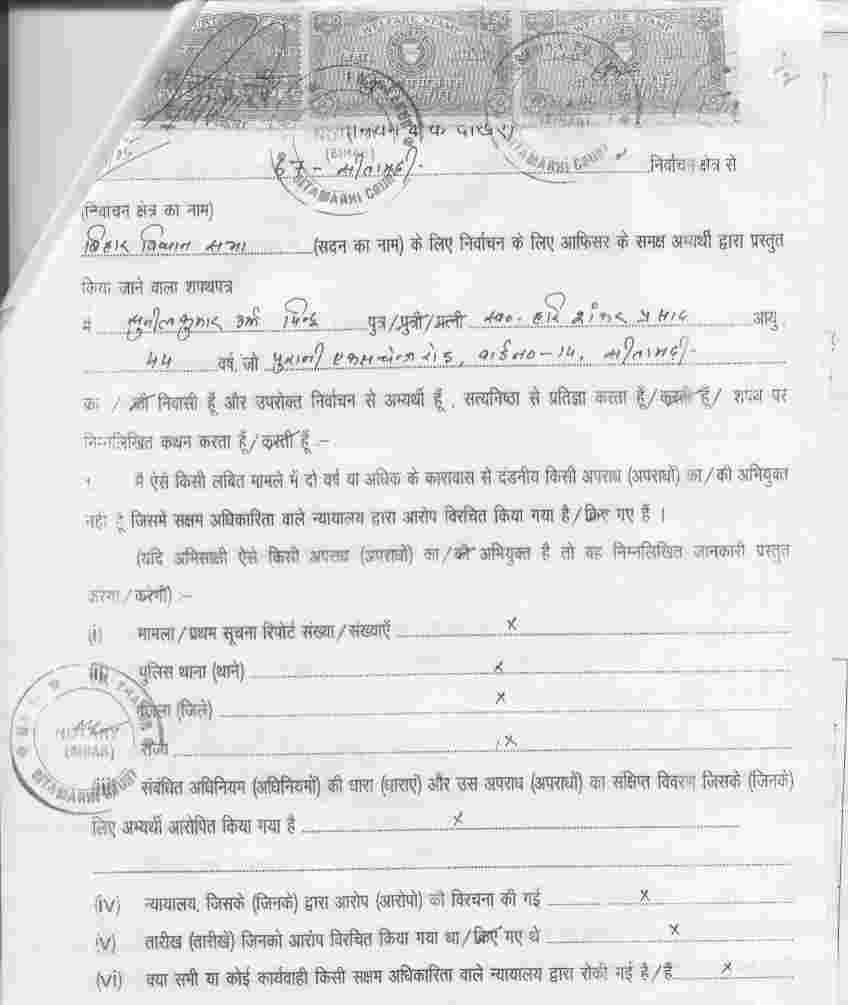 WELFARE STAMP
WELFARE STAMP
SITAMARHI COURT
(BIHAR)
SITAMARHI COURT
निर्वाचन क्षेत्र से
(निर्वाचन क्षेत्र का नाम)
बिहार विधान सभा (सदन का नाम) के लिए निर्वाचन के लिए आफिसर के समक्ष अभ्यर्थी द्वारा प्रस्तुत
किया जाने वाला शपथपत्र
मैं सुनील कुमार उर्फ पिन्टू पुत्र/पुत्री/पत्नी स्व० हरि शंकर प्रसाद आयु
44 वर्ष, जो पुरानी एक्सचेन्ज रोड, वार्ड न०-14, सीतामढ़ी
का / की निवासी हूँ और उपरोक्त निर्वाचन से अभ्यर्थी हूँ, सत्यनिष्ठा से प्रतिज्ञा करता हूँ/करती हूँ/ शपथ पर
निम्नलिखित कथन करता हूँ/करती हूँ :-
मैं ऐसे किसी लंबित मामले में दो वर्ष या अधिक के कारावास से दंडनीय किसी अपराध (अपराधों) का/की अभियुक्त
नहीं हूँ जिसमें सक्षम अधिकारिता वाले न्यायालय द्वारा आरोप विरचित किया गया है/किए गए हैं ।
(यदि अभिसाक्षी ऐसे किसी अपराध (अपराधों) का/की अभियुक्त है तो वह निम्नलिखित जानकारी प्रस्तुत
करेगा/करेगी) :-
(i) मामला/प्रथम सूचना रिपोर्ट संख्या/संख्याएँ x
(ii) पुलिस थाना (थाने) x
जिला (जिले) x
राज्य x
NOTARY
(BIHAR)
SITAMARHI COURT
(iii) संबंधित अधिनियम (अधिनियमों) की धारा (धाराएं) और उस अपराध (अपराधों) का संक्षिप्त विवरण जिसके (जिनके)
लिए अभ्यर्थी आरोपित किया गया है x
(iv) न्यायालय, जिसके (जिनके) द्वारा आरोप (आरोपो) की विरचना की गई x
(v) तारीख (तारीखें) जिनको आरोप विरचित किया गया था/किए गए थे x
(vi) क्या सभी या कोई कार्यवाही किसी सक्षम अधिकारिता वाले न्यायालय द्वारा रोकी गई है/हैं x